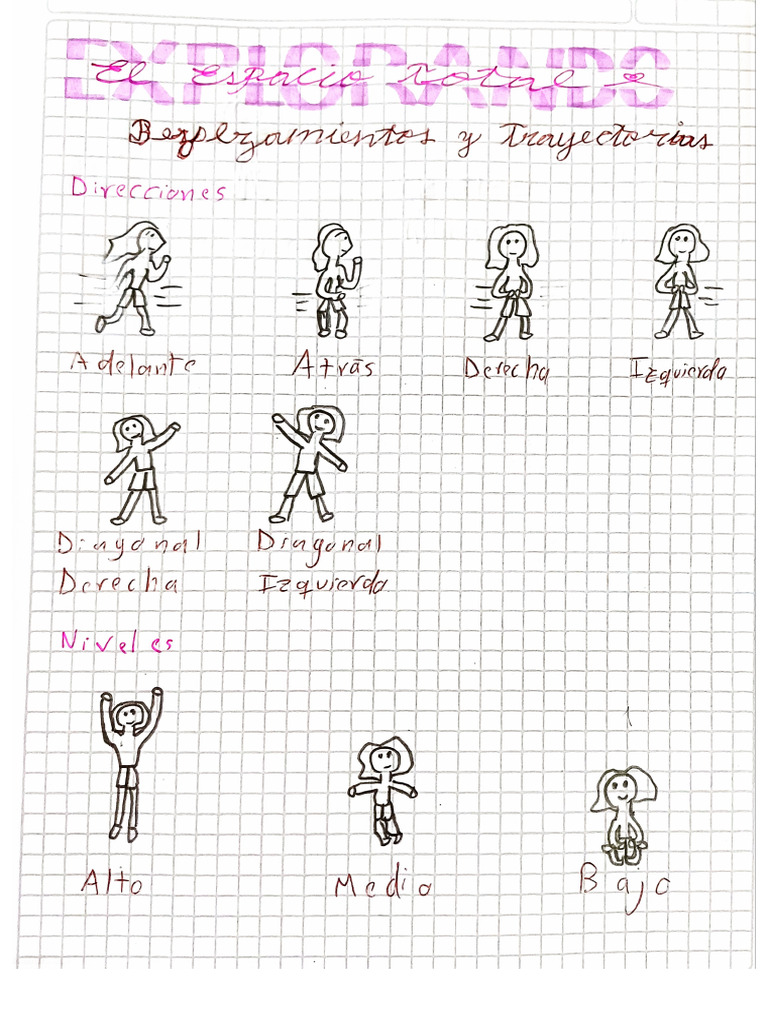 EXPLORANDO
El Espacio Total
y Trayectorias
Direcciones
Adelante Atrás Derecha Izquierda
Diagonal Diagonal
Derecha Izquierda
Niveles
Alto Medio Bajo